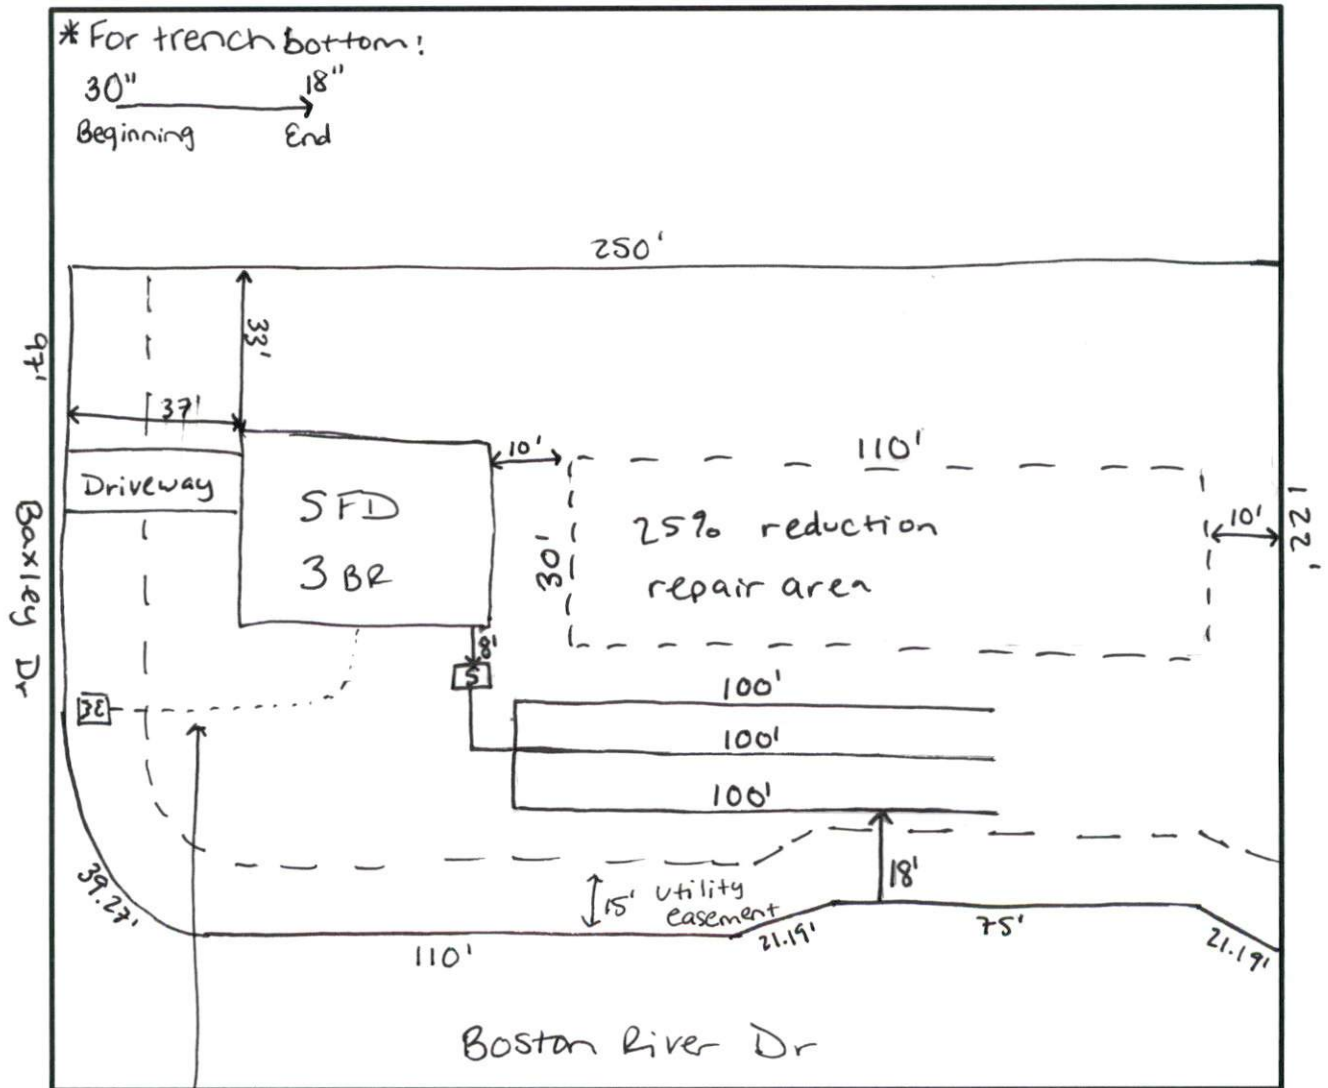 * For trench bottom:
30" 18"
Beginning End
250'
97'
33'
37'
10'
110'
Driveway
SFD
3 BR
30'
25% reduction
repair area
10'
122'
Baxley Dr
8'
S
100'
100'
100'
18'
15' utility
easement
39.27'
110'
21.19'
75'
21.19'
Boston River Dr